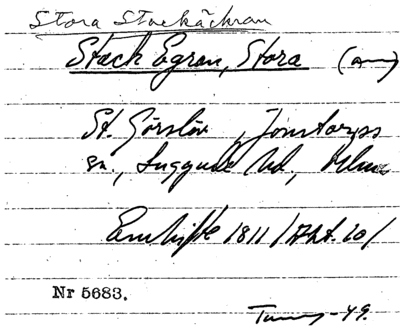 Stora Stackåkran
Stack Egran, Stora
St. Görslöv, Jonstorps
sn., Luggude hd, Mlms
Enskifte 1811 /Akt. 20/
Nr 5683.
-49.